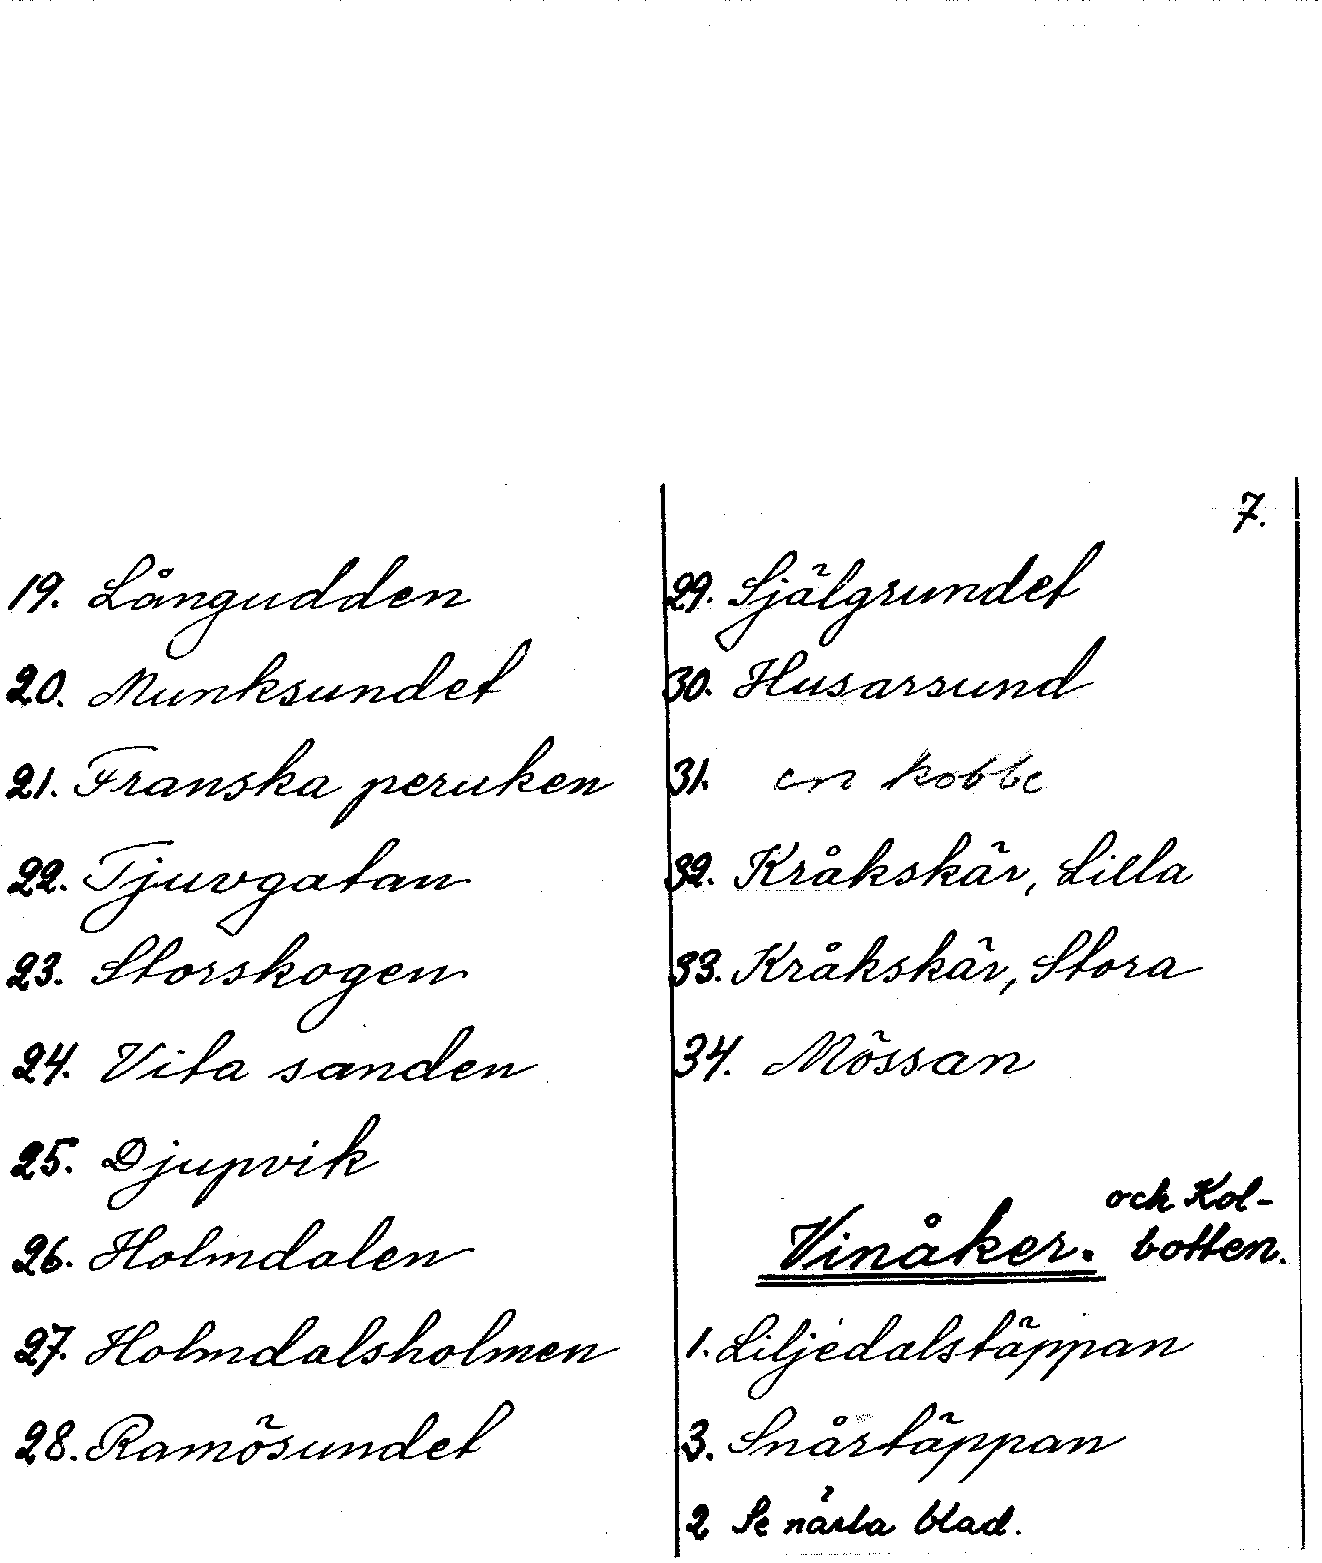 19. Långudden
20. Munksundet
21. Franska peruken
22. Tjuvgatan
23. Storskogen
24. Vita sanden
25. Djupvik
26. Holmdalen
27. Holmdalsholmen
28. Ramösundet
7.
29. Själgrundet
30. Husarsund
31. en kobbe
32. Kråkskär, Lilla
33. Kråkskär, Stora
34. Mössan
och Kol-
Vinåker. botten.
1. Liljedalstäppan
3. Snårtäppan
2 Se nästa blad.